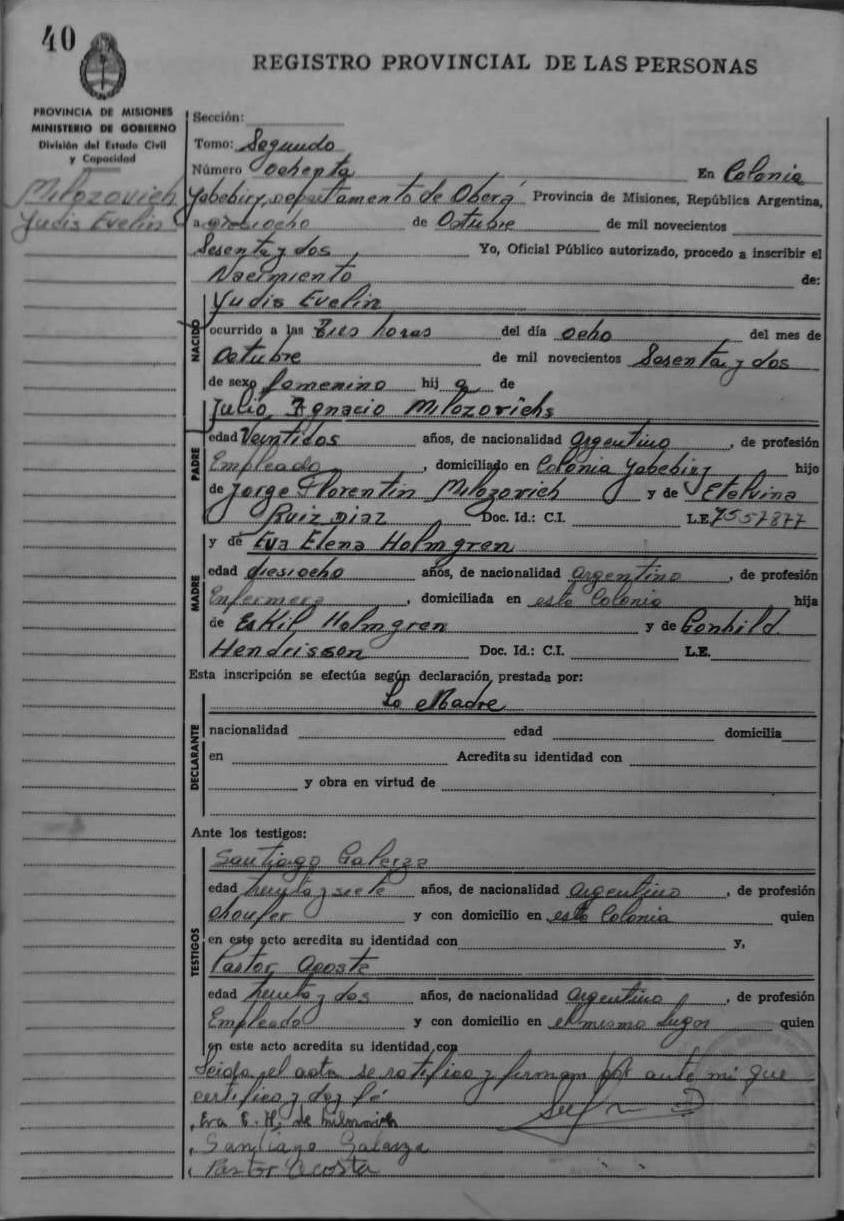 40
REGISTRO PROVINCIAL DE LAS PERSONAS
PROVINCIA DE MISIONES
MINISTERIO DE GOBIERNO
División del Estado Civil
y Capacidad
Milozovich
Yudis Evelin
Sección:
Tomo: Segundo
Número Ochenta En Colonia
Yabebiry, Departamento de Oberá Provincia de Misiones, República Argentina,
a diesiocho de Octubre de mil novecientos
Sesenta y dos Yo, Oficial Público autorizado, procedo a inscribir el
Nacimiento de:
NACIDO
Yudis Evelin
ocurrido a las Tres horas del día ocho del mes de
Octubre de mil novecientos Sesenta y dos
de sexo femenino hij a de
PADRE
Julio Ignacio Milozovichs
edad Veintidos años, de nacionalidad argentino, de profesión
Empleado, domiciliado en Colonia Yabebiry hijo
de Jorge Florentin Milozovich y de Etelvina
Ruiz Diaz Doc. Id.: C.I. L.E. 7557877
MADRE
y de Eva Elena Holmgren
edad diesiocho años, de nacionalidad argentino, de profesión
Enfermera, domiciliada en esta Colonia hija
de Eskil Holmgren y de Gonhild
Hendrisson Doc. Id.: C.I. L.E.
Esta inscripción se efectúa según declaración prestada por:
DECLARANTE
La Madre
nacionalidad edad domicilia
en Acredita su identidad con
y obra en virtud de
Ante los testigos:
TESTIGOS
Santiago Galerza
edad treinta y siete años, de nacionalidad argentino, de profesión
choufer y con domicilio en esta Colonia quien
en este acto acredita su identidad con y,
Pastor Acosta
edad treinta y dos años, de nacionalidad argentino, de profesión
Empleado y con domicilio en el mismo lugar quien
en este acto acredita su identidad con
Leida el acta se ratifica y firman por ante mi que
certifico y doy fé
Eva E. H. de Milozovich
Santiago Galarza
Pastor Acosta